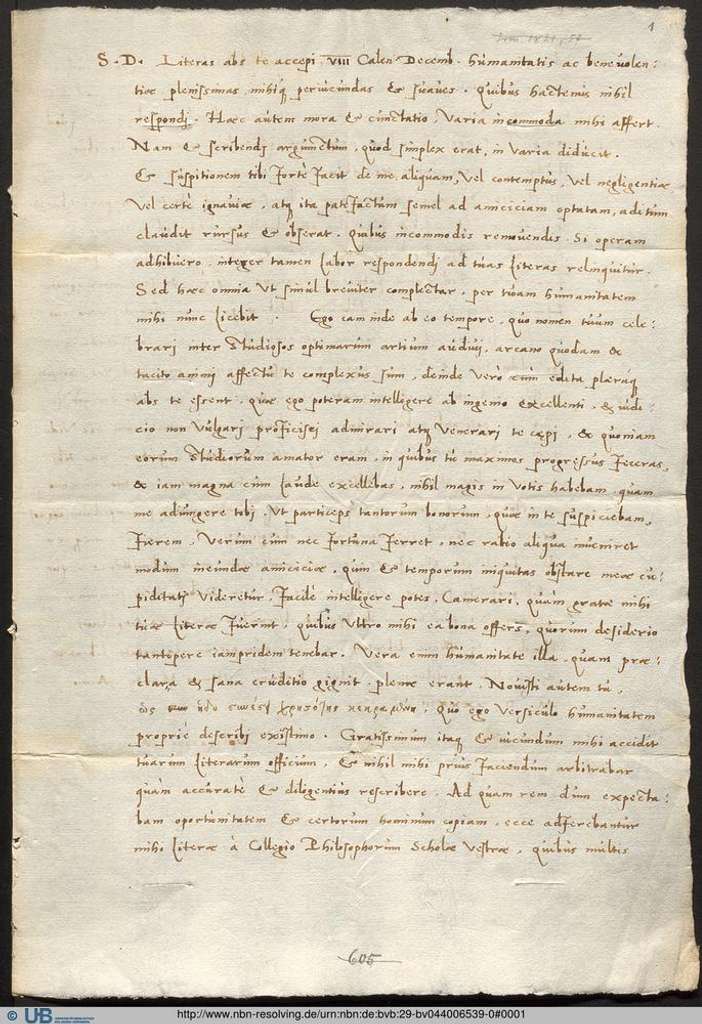 1
S. D. Literas abs te accepi VIII Calen Decemb. húmanitatis ac beneuolen:
tiæ plenissimas, mihiq periucundas & suaues. quibus hactenus nihil
respondj. Hæc aútem mora & cunctatio, varia incommoda mihi affert.
Nam & scribendj argúmentúm, qúod simplex erat, in varia didúcit.
& súspitionem tibi fortè facit de me aliqúam, vel contemptús, vel negligentiæ
vel certè ignauiæ, atq ita patefactúm semel ad amiciciam optatam, aditúm
claúdit rúrsús & obserat. quibús incommodis remouendis. Si operam
adhibúero, integer tamen labor respondendj ad túas literas relinquitúr.
Sed hæc omnia ut simúl breuiter complectar, per túam húmanitatem
mihi núnc licebit. Ego iam inde ab eo tempore, qúo nomen túúm cele:
brari inter stúdiosos optimarúm artiúm aúdiuj, arcano qúodam &
tacito animi affectú te complexús súm, deinde verò cúm edita pleraq
abs te essent, quæ ego poteram intelligere ab ingenio excellenti, & iúdi:
cio non vúlgari proficiscj admirari atq venerari te cæpi, & quoniam
eorúm stúdiorúm amator eram, in qúibús tú maximos progressús feceras,
& iam magna cúm laúde excellebas, nihil magis in votis habebam, quam
me adiúngere tibj, vt particeps tantorúm bonorúm, qúæ in te súspiciebam,
fierem, verúm cúm nec fortúna ferret, nec ratio aliqúa inueniret
modúm ineúndæ amiciciæ, qúin & temporúm iniquitas obstare meæ cú:
piditatj videretúr, facilè intelligere potes, Camerari, qúàm gratæ mihi
túæ literæ fúerint, qúibús vltro mihi ea bona offers, qúorúm desiderio
tantopere iampridem tenebar. Vera enim húmanitate illa, qúam præ:
clara & sana erúditio gignit, plenæ erant. Nouisti aútem tú,
qúo ego versicúlo húmanitatem
propriè describj existimo. Gratissimúm itaq & iúcúndúm mihi accidit
túarúm literarúm officiúm, & nihil mihi priús faciendúm arbitrabar
qúàm accúratè & diligentiús rescribere. Ad qúam rem dúm expecta:
bam oportúnitatem & certorúm hominúm copiam, ecce adferebantúr
mihi literæ à Collegio Philosophorúm Scholæ vestræ, qúibús múltis
605
UB
http://www.nbn-resolving.de/urn:nbn:de:bvb:29-bv044006539-0#0001